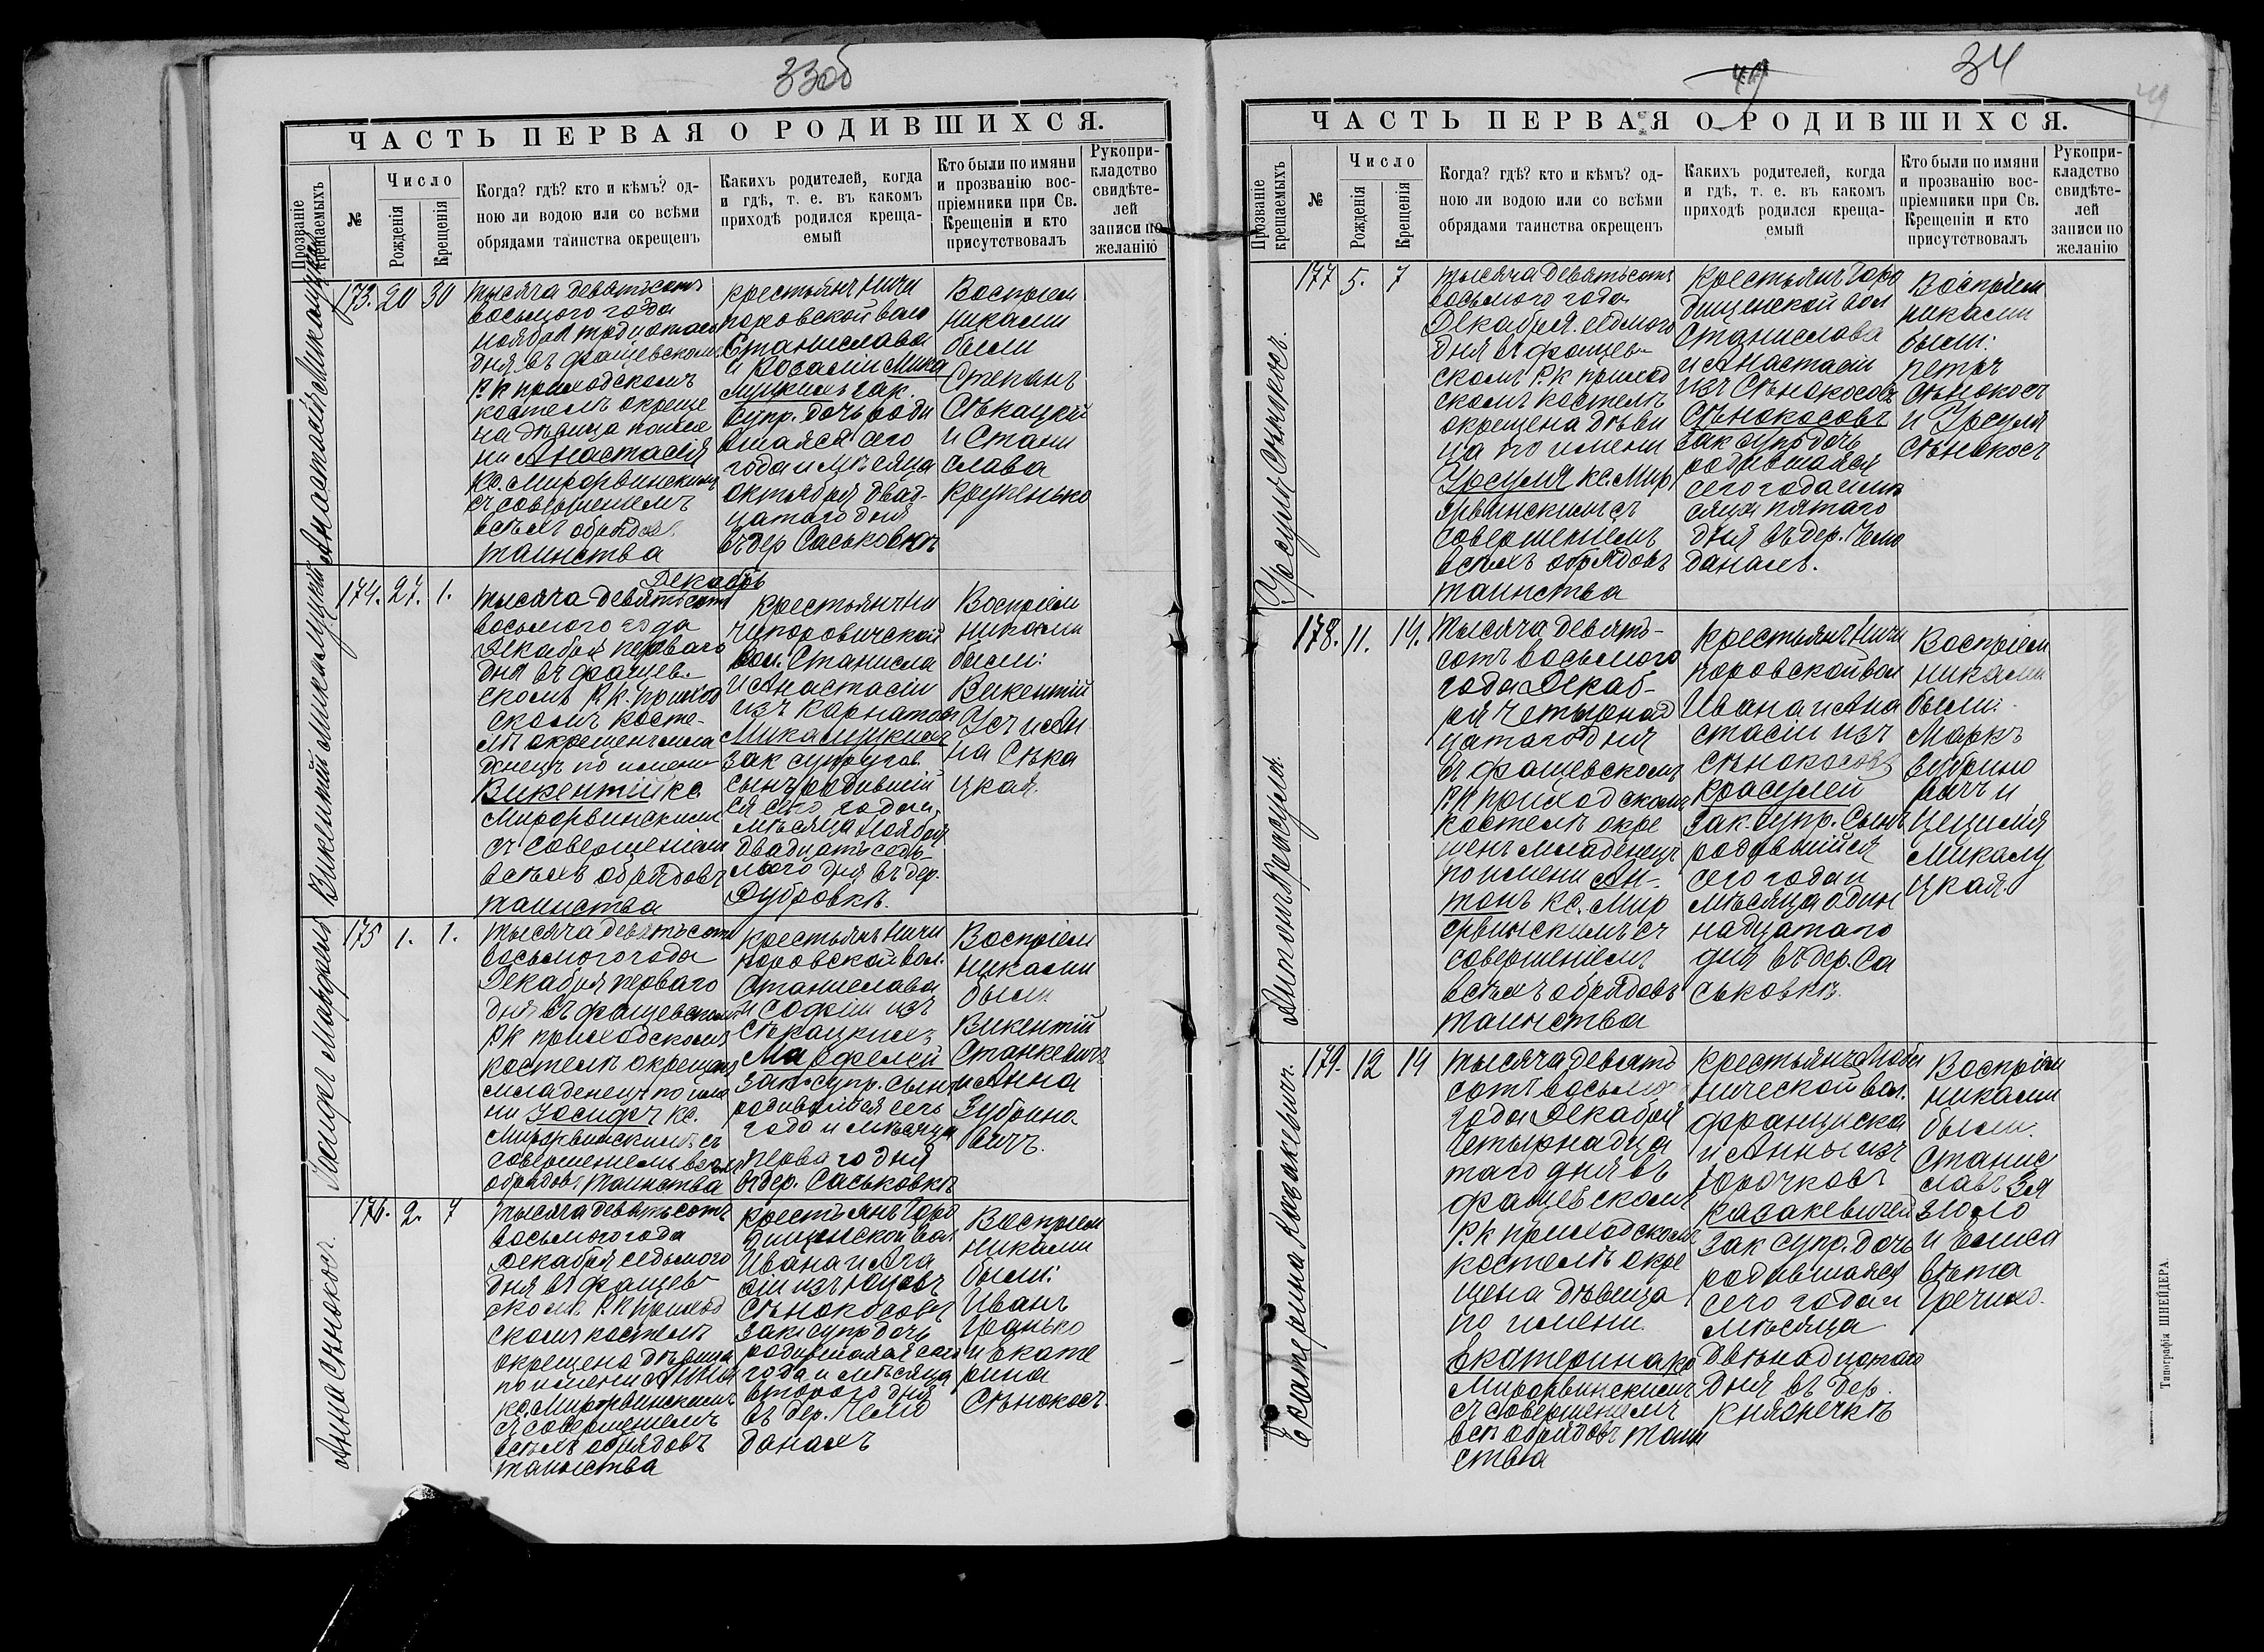 33об
ЧАСТЬ ПЕРВАЯ О РОДИВШИХСЯ.
Прозваніе крещаемыхъ
№
Число
Рожденія
Крещенія
Когда? гдѣ? кто и кѣмъ? од-
ною ли водою или со всѣми
обрядами таинства окрещенъ
Каких родителей, когда
и гдѣ, т. е. въ какомъ
приходѣ родился креща-
емый
Кто были по имяни
и прозванію вос-
пріемники при Св.
Крещеніи и кто
присутствовалъ
Рукопри-
кладство
свидѣте-
лей
записи по
желанію
Анастасія
173. 20 30
тысяча девятьсотъ
восьмого года
ноября тридцатаго
дня въ Фащевскомъ
Р.К приходскомъ
костелѣ окреще
на дѣвица по име
ни Анастасія
кс. Мирорвинскимъ
съ совершеніемъ
всѣхъ обрядов.
таинства
крестьянъ Ничи
поровской вол
Станислава
и Розаліи Мика
луцкихъ зак.
супр. дочь роди
вшаяся сего
года и мѣсяца
октября двад-
цатаго дня
въ дер Саськовкѣ
Воспріем
никами
были
Степанъ
Сѣкацкій
и Стани
слава
Крукенько
Декабрь
Викентій Микалуцкій
174. 27. 1.
тысяча девятьсотъ
восьмого года
Декабря перваго
дня въ Фащев-
скомъ Р.К. приход
скомъ косте-
лѣ окрещенъ мла
денецъ по имени
Викентій кс.
Мирорвинскимъ
съ совершеніемъ
всѣхъ обрядовъ
таинства
крестьянъ Ни
чипоровичской
вол. Станисла
и Анастасіи
изъ Карнатовъ
Микалуцкихъ
зак супругов
сынъ родившій
ся сего года и
мѣсяца Ноября
двадцать седь
мого дня въ дер.
Дубровкѣ.
Воспріем
никами
были:
Викентій
Усъ и Ан
на Сѣка
цкая.
Іосифъ Марфель
175 1. 1.
тысяча девятьсотъ
восьмого года
Декабря перваго
дня въ Фащевскомъ
Р.К приходскомъ
костелѣ окрещенъ
младенецъ по име
ни Іосифъ кс.
Мирорвинскимъ съ
совершеніемъ всѣхъ
обрядов. таинства
крестьянъ Ничи
поровской вол.
Станислава
и Софіи изъ
Сѣкацкихъ
Марфелей
зак. супр. сынъ
родившійся сего
года и мѣсяца
перваго дня
въ дер. Саськовкѣ
Воспріем
никами
были
Викентій
Станкевичъ
и Анна
Зубрино
вичъ.
Анна Сѣнокосъ.
176. 2. 7
тысяча девятьсотъ
восьмого года
Декабря седьмого
дня въ Фащев-
скомъ Р.К приход
скомъ костелѣ
окрещена дѣвица
по имени Анна
кс. Мирорвинскимъ
съ совершеніемъ
всѣхъ обрядовъ
таинства
крестьянъ Горо
дищенской вол
Ивана и Ага
фіи изъ Юцовъ
Сѣнокосовъ
зак супр дочь
родившаяся сего
года и мѣсяца
второго дня
въ дер. Чемо
данахъ
Воспріем
никами
были:
Иванъ
Гранько
и Екате
рина
Сѣнокосъ.
34
49
ЧАСТЬ ПЕРВАЯ О РОДИВШИХСЯ.
Прозваніе крещаемыхъ
№
Число
Рожденія
Крещенія
Когда? гдѣ? кто и кѣмъ? од-
ною ли водою или со всѣми
обрядами таинства окрещенъ
Каких родителей, когда
и гдѣ, т. е. въ какомъ
приходѣ родился креща-
емый
Кто были по имяни
и прозванію вос-
пріемники при Св.
Крещеніи и кто
присутствовалъ
Рукопри-
кладство
свидѣте-
лей
записи по
желанію
Урсуля Сѣнокосъ.
177 5. 7
тысяча девятьсотъ
восьмого года
Декабря седмого
дня въ Фащев-
скомъ Р.К приход
скомъ костелѣ
окрещена дѣви
ца по имени
Урсуля кс. Мир
орвинскимъ съ
совершеніемъ
всѣхъ обрядовъ
таинства
крестьянъ Горо
дищенской вол
Станислава
и Анастасіи
изъ Сѣнокосовъ
Сѣнокосовъ
зак супр дочь
родившаяся
сего года и мѣ
сяца пятаго
дня въ дер. Чемо
данахъ.
Воспріем
никами
были:
Петръ
Сѣнокосъ
и Урсуля
Сѣнокосъ
Антонъ Красуля.
178. 11. 14.
тысяча девять-
сотъ восьмого
года Декаб-
ря четырнад
цатаго дня
въ Фащевскомъ
Р.К приходскомъ
костелѣ окре
щенъ младенецъ
по имени Ан-
тонъ кс. Мир
орвинскимъ съ
совершеніемъ
всѣхъ обрядовъ
таинства
крестьянъ Ничи
поровской вол
Ивана и Ана
стасіи изъ
Сѣнокосовъ
Красулей
зак. супр. сынъ
родившійся
сего года и
мѣсяца один
надцатаго
дня въ дер. Са
ськовкѣ.
Воспріем
никами
были:
Маркъ
Зубрино
вичъ и
Цецилія
Микалу
цкая.
Екатерина Казакевичъ.
179. 12 14
тысяча девять
сотъ восьмо
года Декабря
четырнадца
таго дня въ
Фащевскомъ
Р.К приходскомъ
костелѣ окре
щена дѣвица
по имени
Екатерина кс
Мирорвинскимъ
съ совершеніемъ
всѣ обрядовъ таин
ства
нической вол.
Франциска
и Анны изъ
Юрочковъ
Казакевичей
зак супр. дочь
родившаяся
сего года и
мѣсяца
двѣнадцатаго
дня въ дер.
Княжечкѣ
Воспріем
никами
были.
Станис
лавъ Зя
зюло
и Елиса
вѣта
Гречихо.
Типографія ШНЕЙДЕРА